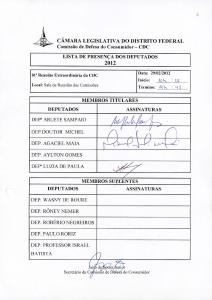 CÂMARA LEGISLATIVA DO DISTRITO FEDERAL
Comissão de Defesa do Consumidor – CDC
LISTA DE PRESENÇA DOS DEPUTADOS
2012
Reunião Extraordinária da CDC
Data: 29/02/2012
Local: Sala de Reunião das Comissões
Início:
Término:
MEMBROS TITULARES
DEPUTADOS
ASSINATURAS
DEPª ARLETE SAMPAIO
DEP. DOUTOR MICHEL
DEP. AGACIEL MAIA
DEP. AYLTON GOMES
DEPª LUZIA DE PAULA
MEMBROS SUPLENTES
DEPUTADOS
ASSINATURAS
DEP. WASNY DE ROURE
DEP. RÔNEY NEMER
DEP. ROBÉRIO NEGREIROS
DEP. PAULO RORIZ
DEP. PROFESSOR ISRAEL
BATISTA
Secretário da Comissão de Defesa do Consumidor